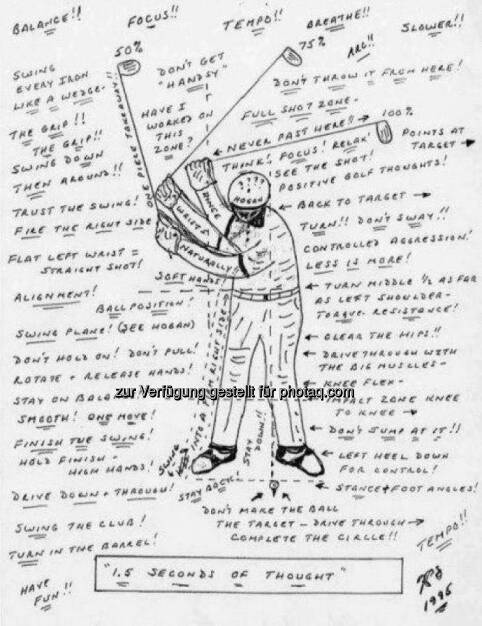 BALANCE!!
FOCUS!!
TEMPO!!
BREATHE!!
SLOWER!!
50%
75%
ARC!!
SWING
EVERY IRON
LIKE A WEDGE-
DON'T GET
"HANDSY"
DON'T THROW IT FROM HERE!
THE GRIP!!
THE GRIP!!
HAVE I
WORKED ON
THIS
ZONE?
FULL SHOT ZONE-
100%
NEVER PAST HERE!!
POINTS AT
TARGET
SWING DOWN
THEN AROUND!!
ONE PIECE TAKEAWAY!!
THINK! FOCUS! RELAX!
SEE THE SHOT!
POSITIVE GOLF THOUGHTS!
TRUST THE SWING!
FIRE THE RIGHT SIDE
WRISTS
HINGE
NATURALLY!!
????
HOGAN
BACK TO TARGET
TURN!! DON'T SWAY!!
FLAT LEFT WRIST =
STRAIGHT SHOT!
CONTROLLED AGGRESSION!
LESS IS MORE!
SOFT HANDS!
ALIGNMENT!
BALL POSITION!
TURN MIDDLE 1/2 AS FAR
AS LEFT SHOULDER-
TORQUE. RESISTANCE!
SWING PLANE! (SEE HOGAN)
CLEAR THE HIPS!!
DON'T HOLD ON! DON'T PULL!
ROTATE + RELEASE HANDS!
DRIVE THROUGH WITH
THE BIG MUSCLES-
STAY ON
KNEE FLEX-
zur Verfügung gestellt für photaq.com
ZONE KNEE
TO KNEE
SMOOTH! ONE MOVE!
FINISH THE SWING!
HOLD FINISH-
HIGH HANDS!
SWING
INTO A
RIGHT SIDE
STAY
DOWN!!
DON'T JUMP AT IT!!
LEFT HEEL DOWN
FOR CONTROL!
DRIVE DOWN + THROUGH!
STAY BACK!
STANCE + FOOT ANGLES!
SWING THE CLUB!
DON'T MAKE THE BALL
THE TARGET - DRIVE THROUGH
COMPLETE THE CIRCLE!!
TURN IN THE BARREL!
TEMPO!!
"1.5 SECONDS OF THOUGHT"
HAVE
FUN!!
1995